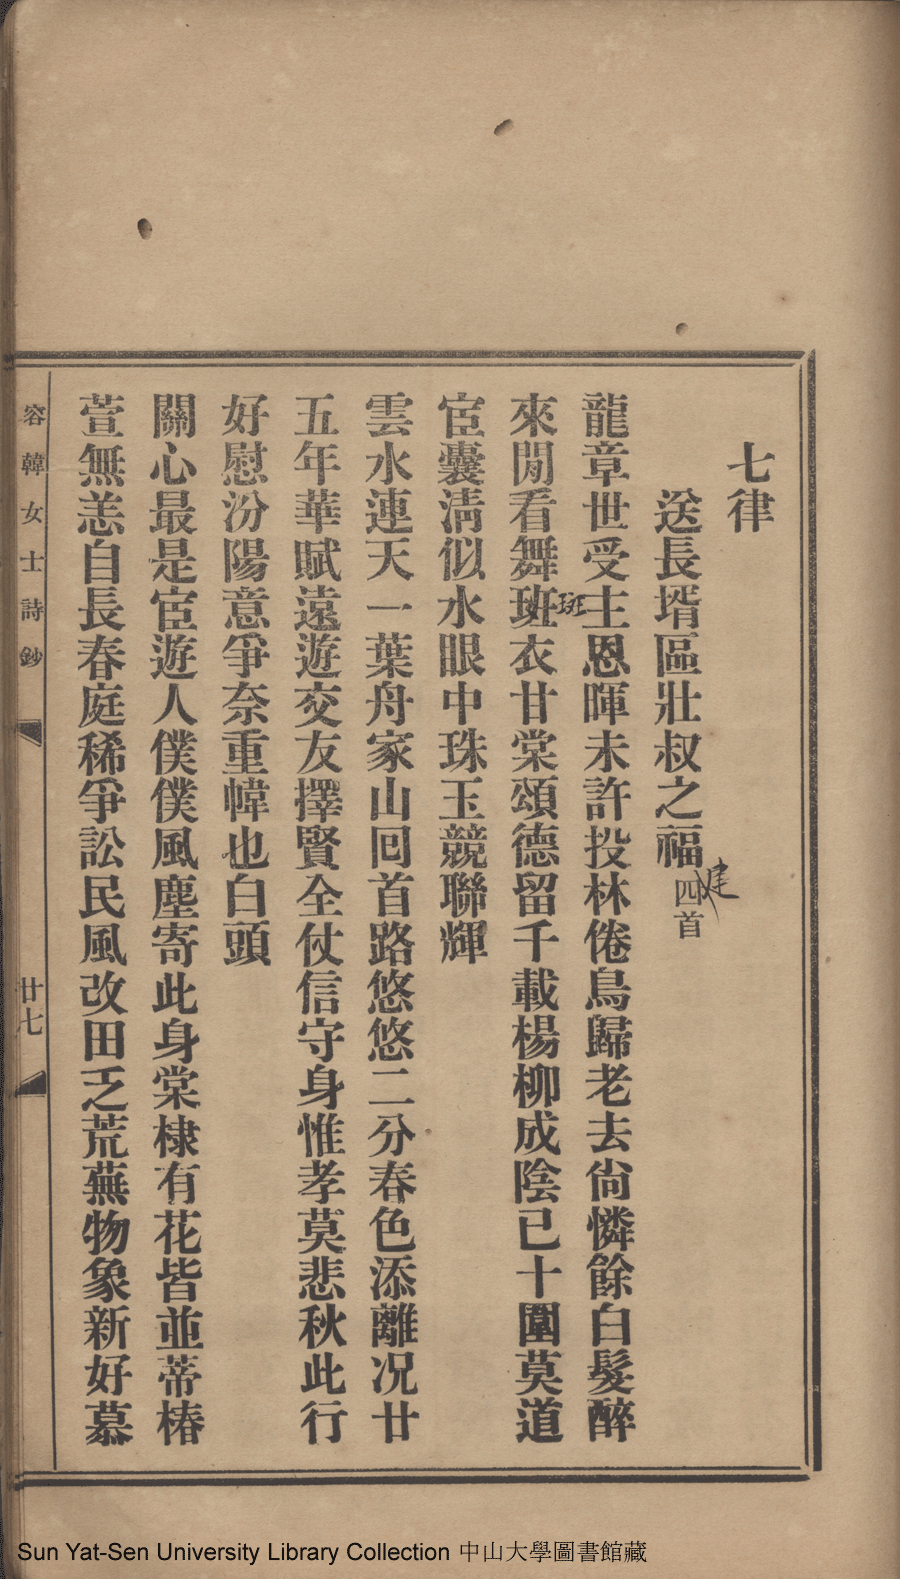 七律
送長壻區壯叔之福四首
建
龍章世受主恩暉未許投林倦鳥歸老去尙憐餘白髮醉
來閒看舞班衣甘棠頌德留千載楊柳成陰已十圍莫道
斑
宦囊淸似水眼中珠玉競聯輝
雲水連天一葉舟家山囘首路悠悠二分春色添離况廿
五年華賦遠遊交友擇賢全仗信守身惟孝莫悲秋此行
好慰汾陽意爭奈重幃也白頭
關心最是宦遊人僕僕風塵寄此身棠棣有花皆並蒂椿
萱無恙自長春庭稀爭訟民風改田乏荒蕪物象新好慕
容韓女士詩鈔
廿七
Sun Yat-Sen University Library Collection 中山大學圖書館藏